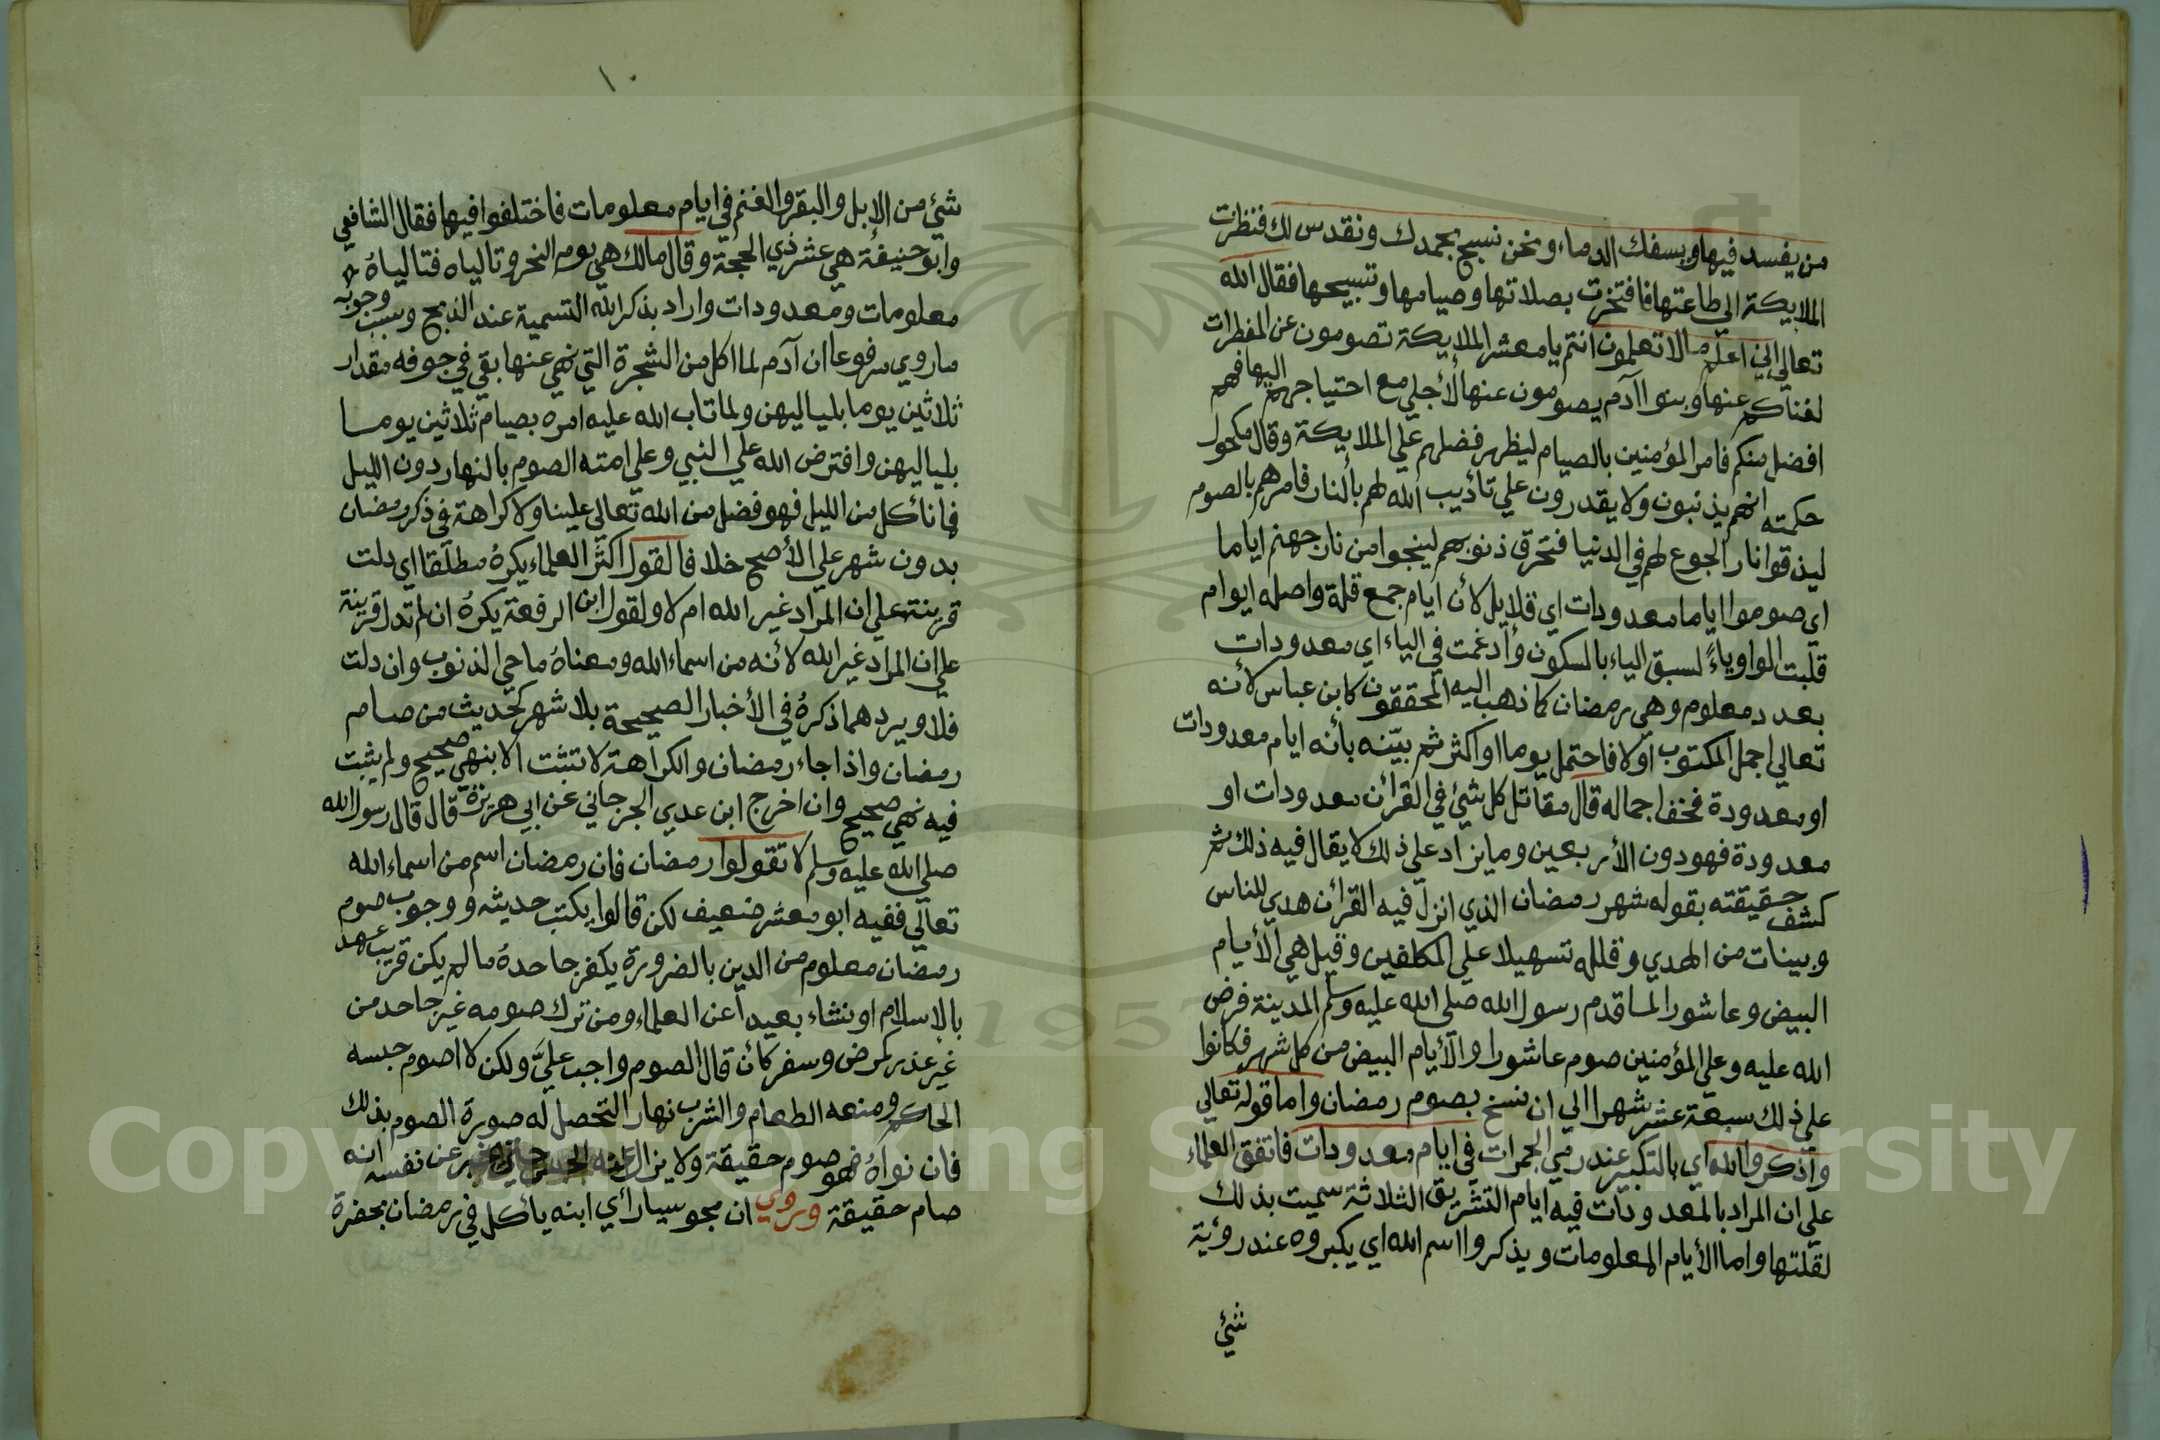 من يفسد فيها ويسفك الدماء ونحن نسبح بحمدك ونقدس لك فنظرت
الملايكة الي طاعتها فافتخرت بصلاتها وصيامها وتسبيحها فقال الله
تعالي إني اعلم مالا تعلمون انتم يا معشر الملايكة تصومون عن المفطرات
لغناكم عنها وبنوا آدم يصومون عنها لأجلي مع احتياجهم اليها فهم
افضل منكم فامر المؤمنين بالصيام ليظهر فضلهم علي الملايكة وقال مكحول
حكمته انهم يذنبون ولا يقدرون علي تأديب الله لهم بالنار فامرهم بالصوم
ليذقوا نار الجوع لهم في الدنيا فتحرق ذنوبهم لينجوا من نار جهنم اياما
اي صوموا اياما معدودات اي قلايل لأن ايام جمع قلة واصله ايوام
قلبت الواو ياءً لسبق الياء بالسكون وأدغمت في الياء اي معدودات
بعدد معلوم وهي رمضان كما ذهب اليه المحققون كابن عباس لأنه
تعالي اجمل المكتوب اولا فاحتمل يوما او اكثر ثم بيّنه بأنه ايام معدودات
او معدودة فخف اجماله قال مقاتل كل شئ في القرآن معدودات او
معدودة فهو دون الأربعين وما يزاد علي ذلك لا يقال فيه ذلك ثم
كشف حقيقته بقوله شهر رمضان الذي انزل فيه القرآن هدي للناس
وبينات من الهدي وقلله تسهيلا علي المكلفين وقيل هي الأيام
البيض وعاشورا لما قدم رسول الله صلي الله عليه وسلم المدينة فرض
الله عليه وعلي المؤمنين صوم عاشورا والأيام البيض من كل شهر فكانوا
علي ذلك سبعة عشر شهرا الي ان نسخ بصوم رمضان واما قوله تعالي
واذكروا الله اي بالتكبير عند رمي الجمرات في ايام معدودات فاتفق العلماء
علي ان المراد بالمعدودات فيه ايام التشريق الثلاثة سميت بذلك
لقلتها واما الأيام المعلومات ويذكروا اسم الله اي يكبروه عند رؤية
شئ
١٠
شئ من الإبل والبقر والغنم في ايام معلومات فاختلفوا فيها فقال الشافعي
وابو حنيفة هي عشر ذي الحجة وقال مالك هي يوم النحر وتالياه فتالياهُ
معلومات ومعدودات واراد بذكر الله التسمية عند الذبح وسبب وجوبه
ما روي مرفوعا ان آدم لما اكل من الشجرة التي نهي عنها بقي في جوفه مقدار
ثلاثين يوما بلياليهن ولما تاب الله عليه امره بصيام ثلاثين يوما
بلياليهن وافترض الله علي النبي وعلي امته الصوم بالنهار دون الليل
فما نأكل من الليل فهو فضل من الله تعالي علينا ولا كراهة في ذكر رمضان
بدون شهر علي الأصح خلافا لقول اكثر العلماء يكرهُ مطلقا اي دلت
قرينة علي ان المراد غير الله ام لا ولقول ابن الرفعة يكرهُ ان لم تدل قرينة
علي ان المراد غير الله لأنه من اسماء الله ومعناهُ ماحي الذنوب وان دلت
فلا ويردهما ذكرهُ في الأخبار الصحيحة بلا شهر كحديث من صام
رمضان واذا جاء رمضان والكراهة لا تثبت الا بنهي صحيح ولم يثبت
فيه نهي صحيح وان اخرج ابن عدي الجرجاني عن ابي هريرة قال قال رسول الله
صلي الله عليه وسلم لا تقولوا رمضان فان رمضان اسم من اسماء الله
تعالي ففيه ابو معشر ضعيف لكن قالوا يكتب حديثه ووجوب صوم
رمضان معلوم من الدين بالضرورة يكفر جاحدهُ ما لم يكن قريب عهد
بالاسلام او نشاء بعيدا عن العلماء ومن ترك صومه غير جاحد من
غير عذر كمرض وسفر كأن قال الصوم واجب عليَّ ولكن لا اصوم حبسه
الحاكم ومنعه الطعام والشرب نهار التحصل له صورة الصوم بذلك
فان نواهُ فهو صوم حقيقة ولا يزال عن نفسه انه
صام حقيقة وروي ان مجوسيا رأي ابنه يأكل في رمضان بحضرة
Copyright © King Saud University
1957